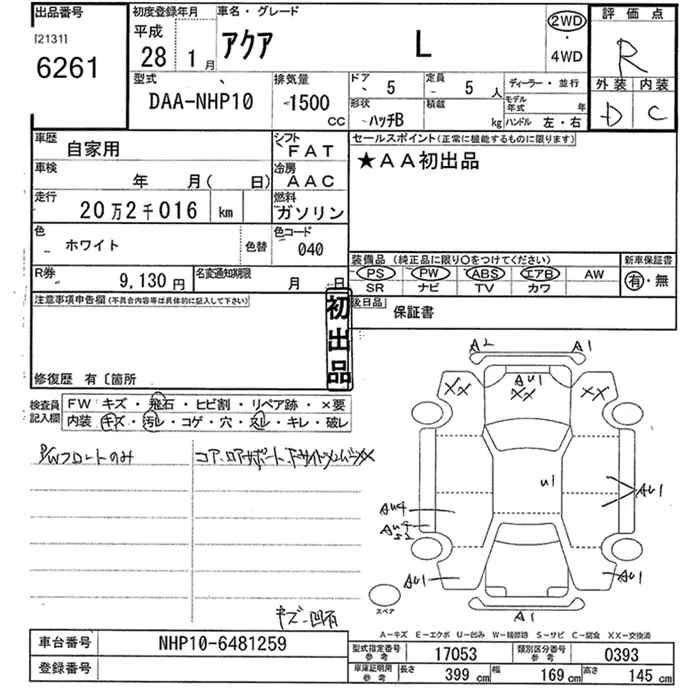 出品番号
[2131]
6261
初度登録年月
平成
28 1月
車名・グレード
アクア L
2WD
・
4WD
評価点
R
外装 内装
D C
型式
DAA-NHP10
排気量
1500
CC
ドア 5
定員 5 人
ディーラー・並行
形状 ハッチB
積載 kg
モデル年式 年
ハンドル 左・右
車歴 自家用
シフト FAT
車検 年 月( 日)
冷房 AAC
走行 20万2千016 km
燃料 ガソリン
色 ホワイト 色替
色コード 040
R券 9,130円
名変通知期限 月 日
セールスポイント(正常に機能するものに限ります)
★AA初出品
装備品(純正品に限り○をつけてください)
PS PW ABS エアB AW
SR ナビ TV カワ
新車保証書
有・無
後日品
保証書
注意事項申告欄(不具合内容等は具体的に記入して下さい)
初出品
修復歴 有〔箇所
検査員記入欄
FW キズ・飛石・ヒビ割・リペア跡・×要
内装 キズ・汚レ・コゲ・穴・スレ・キレ・破レ
P/Wフロントのみ
コア、ロアサポート、
キズ・凹有
A2 A1
XX AU1 XX
U1
AU1
AU4
AU4
S2
AU1 AU1
A1
スペア
A-キズ E-エクボ U-凹み W-補修跡 S-サビ C-腐食 XX-交換済
車台番号 NHP10-6481259
登録番号
型式指定番号 参考 17053
類別区分番号 参考 0393
車庫証明用 参考 長さ 399 cm 幅 169 cm 高さ 145 cm